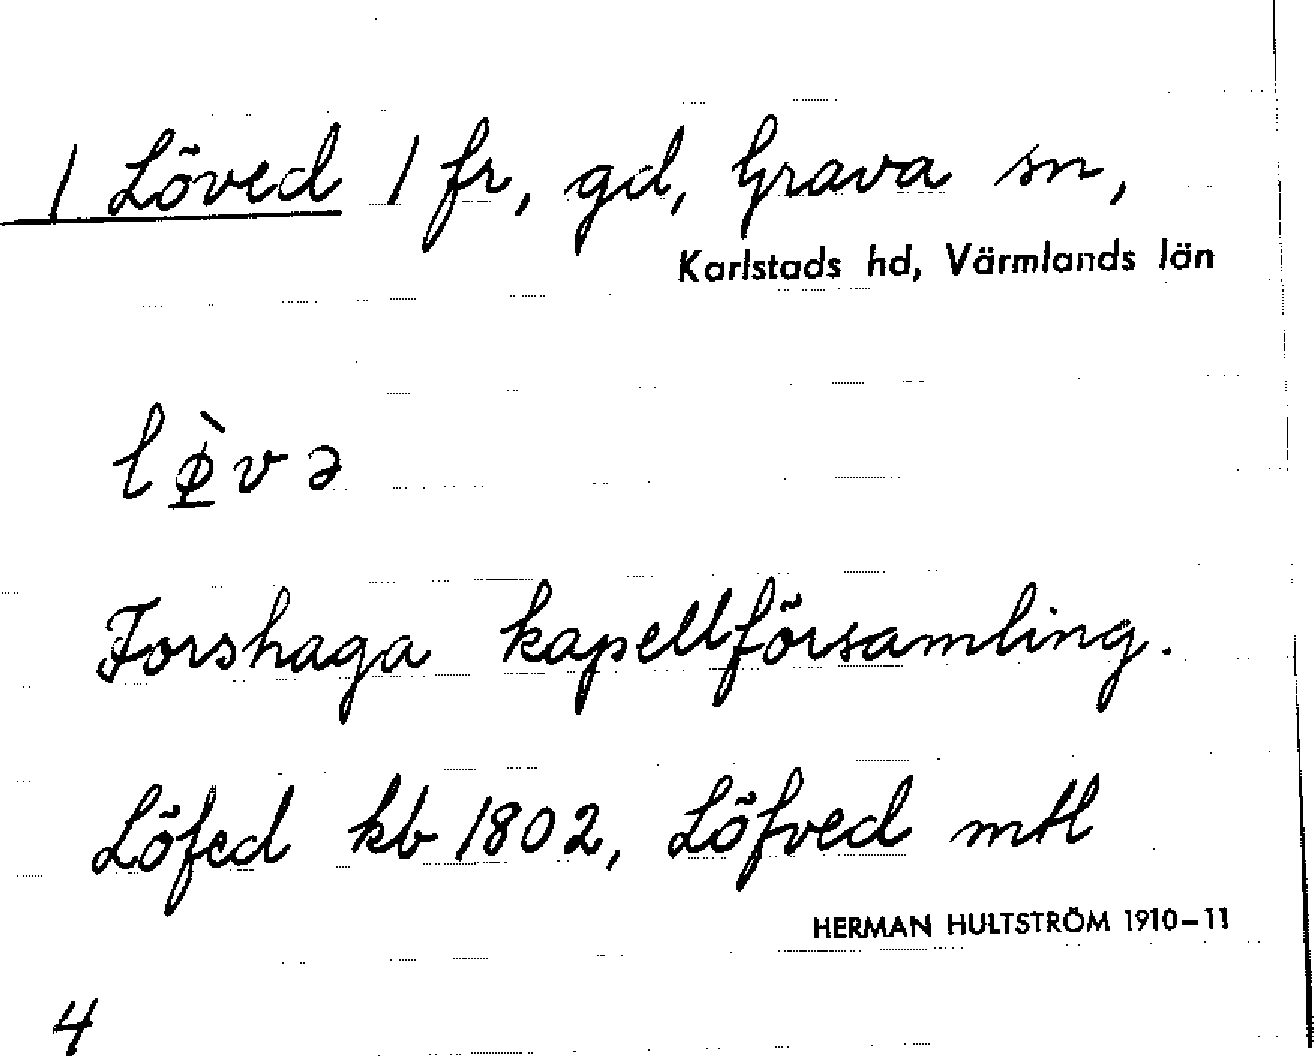 / Löved / fr, gd, Grava sn,
Karlstads hd, Värmlands län
lø̲̀və
Forshaga kapellförsamling.
Löfed kb 1802, Löfved mtl
HERMAN HULTSTRÖM 1910–11
4